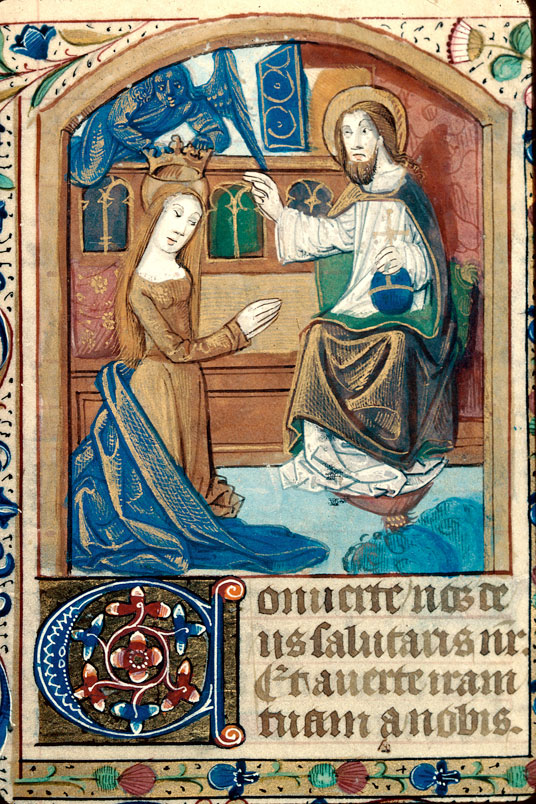 Conuerte nos de
us salutaris nr.
Et auerte iram
tuam a nobis.